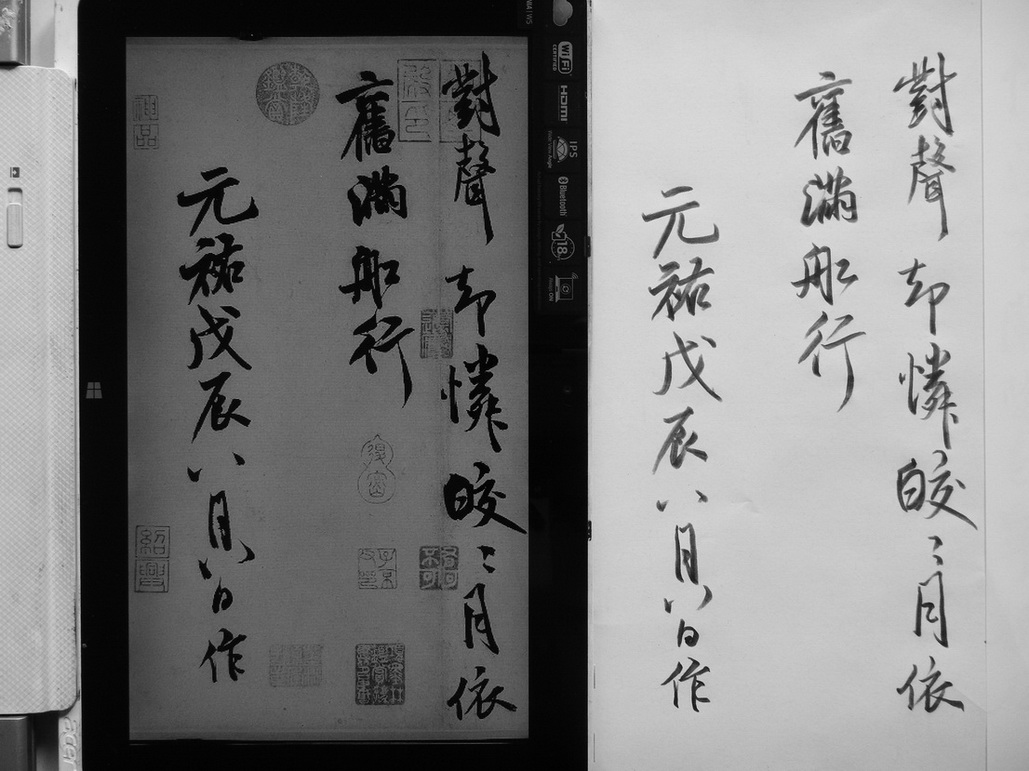 對聲却憐皎〻月依
舊滿船行
元祐戊辰八月八日作
對聲却憐皎〻月依
舊滿船行
元祐戊辰八月八日作
神品
紹興
WiFi
CERTIFIED
HDMI
IPS
Bluetooth
18
acer